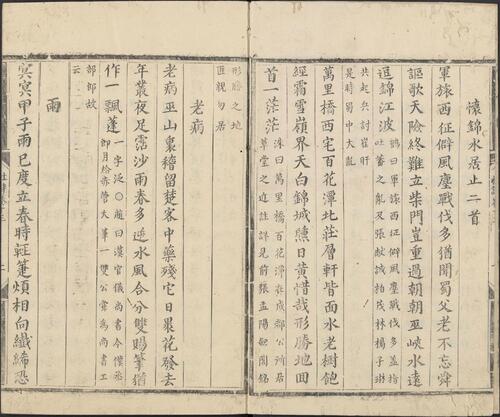 懷錦水居止二首
軍旅西征僻風塵戰伐多猶聞蜀父老不忘舜
謳歌天險終難立柴門豈重過朝朝巫峽水遠
逗錦江波
鶴曰軍旅西征僻風塵戰伐多蓋指
吐蕃之亂及張獻誠柏茂林楊子琳
共起兵討崔旰
是時蜀中大亂
萬里橋西宅百花潭北莊層軒皆面水老樹飽
經霜雪嶺界天白錦城曛日黃惜哉形勝地回
首一茫茫
洙曰萬里橋百花潭在成都公所居
草堂之近註詳見前張孟陽劍閣銘
形勝之地
匪親勿居
老病
老病巫山裏稽留楚客中藥殘它日裹花發去
年叢夜足霑沙雨春多逆水風合分雙賜筆猶
作一飄蓬
一字泛○趙曰漢官儀尚書令僕丞
郎月給赤管大筆一雙公嘗為尚書工
部郎故
云
雨
冥冥甲子雨已度立春時輕箑煩相向纖絺恐